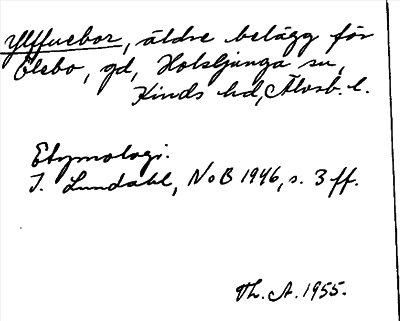 Ylffuebor, äldre belägg för
Elsbo, gd, Holsljunga sn,
Kinds hd, Älvsb. l.
Etymologi.
I. Lundahl, NoB 1946, s. 3 ff.
Th. A. 1955.